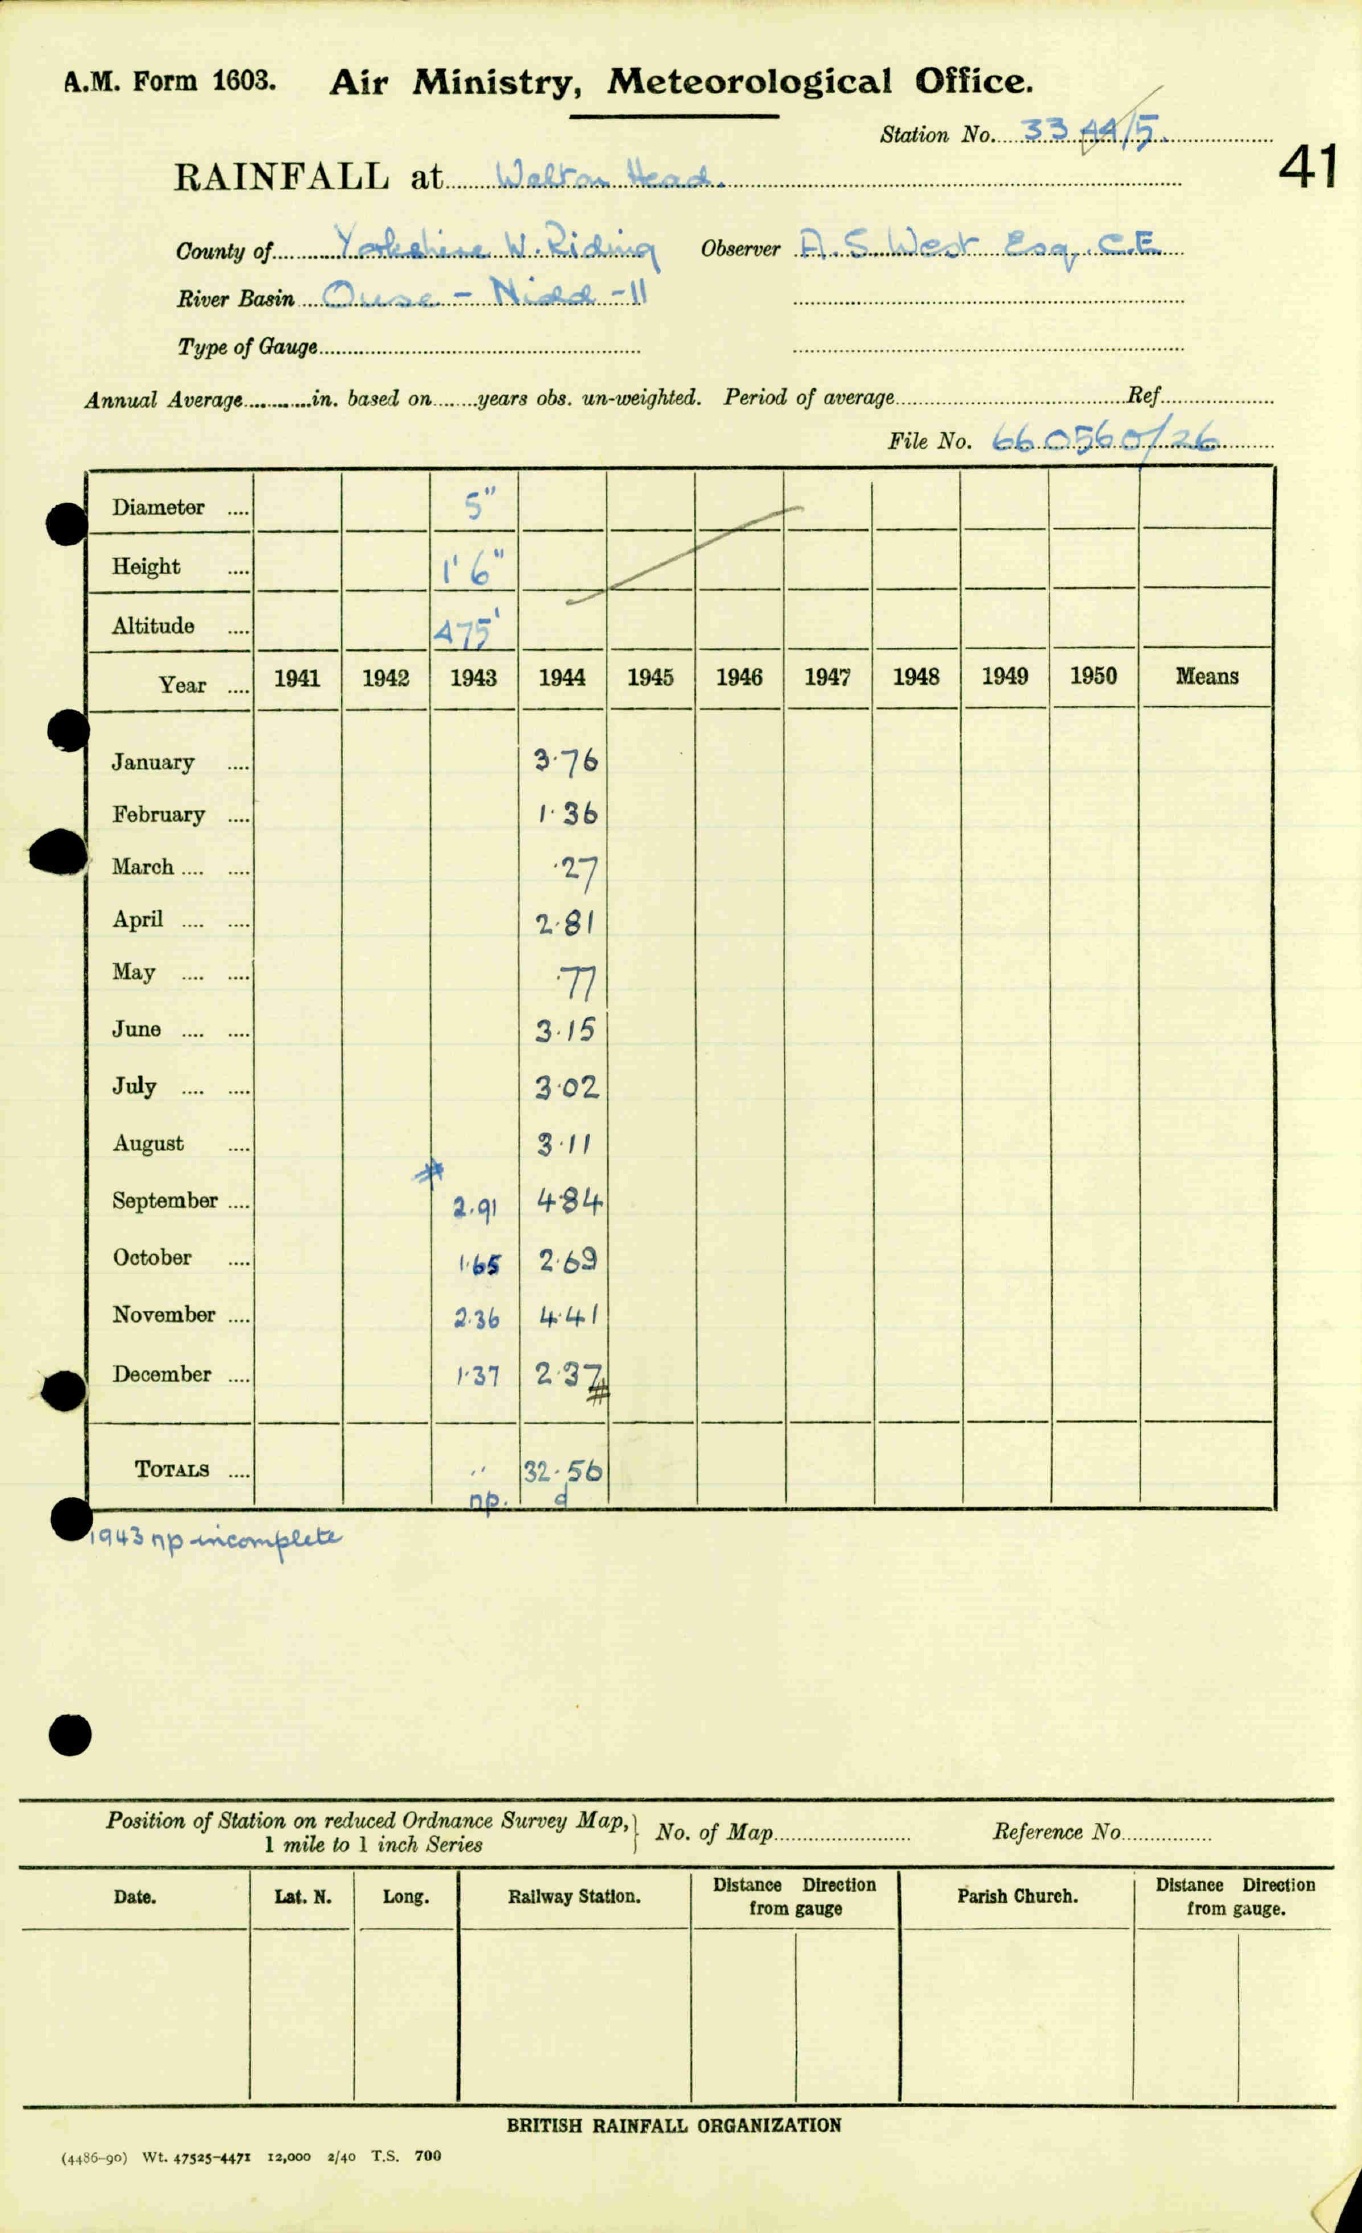 A.M. Form 1603. Air Ministry, Meteorological Office.
Station No. 3344/5.
41
RAINFALL at Walton Head.
County of Yorkshire W. Riding Observer A. S. West Esq. C.E
River Basin Ouse - Nidd - 11
Type of Gauge
Annual Average in. based on years obs. un-weighted. Period of average Ref.
File No. 660560/26
Diameter .... 5"
Height .... 1' 6"
Altitude .... 475'
Year .... 1941 1942 1943 1944 1945 1946 1947 1948 1949 1950 Means
January .... 3.76
February .... 1.36
March .... .... .27
April .... .... 2.81
May .... .... .77
June .... .... 3.15
July .... .... 3.02
August .... 3.11
#
September .... 2.91 4.84
October .... 1.65 2.69
November .... 2.36 4.41
December .... 1.37 2.37
#
TOTALS .... .. 32.56
np. d
1943 np incomplete
Position of Station on reduced Ordnance Survey Map,
1 mile to 1 inch Series } No. of Map Reference No.
Date. Lat. N. Long. Railway Station. Distance Direction from gauge Parish Church. Distance Direction from gauge.
BRITISH RAINFALL ORGANIZATION
(4486-90) Wt. 47525-4471 12,000 2/40 T.S. 700